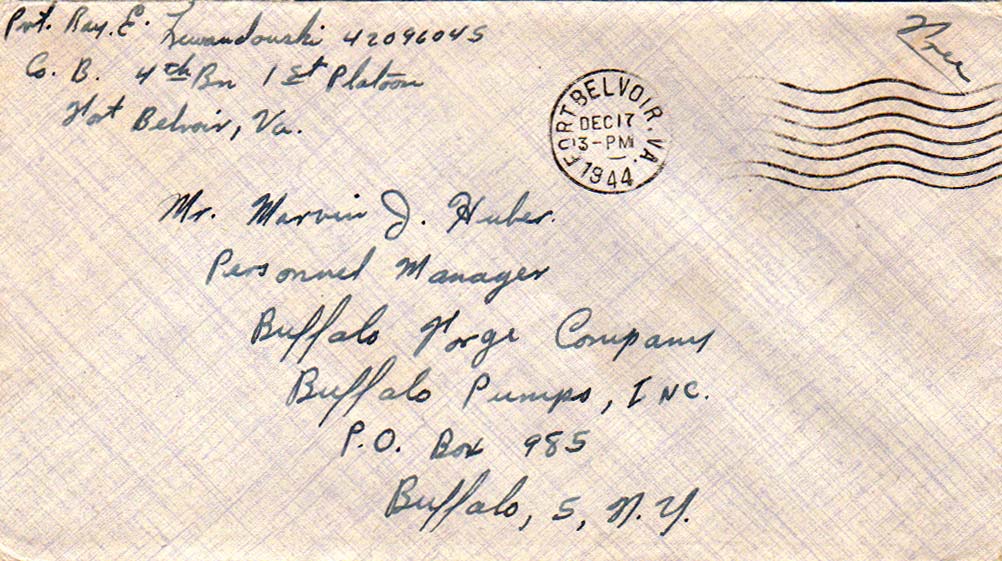 Pvt. Ray. E. Lewandowski 42096045
Co. B. 4th Bn 1st Platoon
Fort Belvoir, Va.
Free
FORT BELVOIR. VA.
DEC 17
3-PM
1944
Mr. Marvin J. Huber.
Personnel Manager
Buffalo Forge Company
Buffalo Pumps, INC.
P.O. Box 985
Buffalo, 5, N.Y.